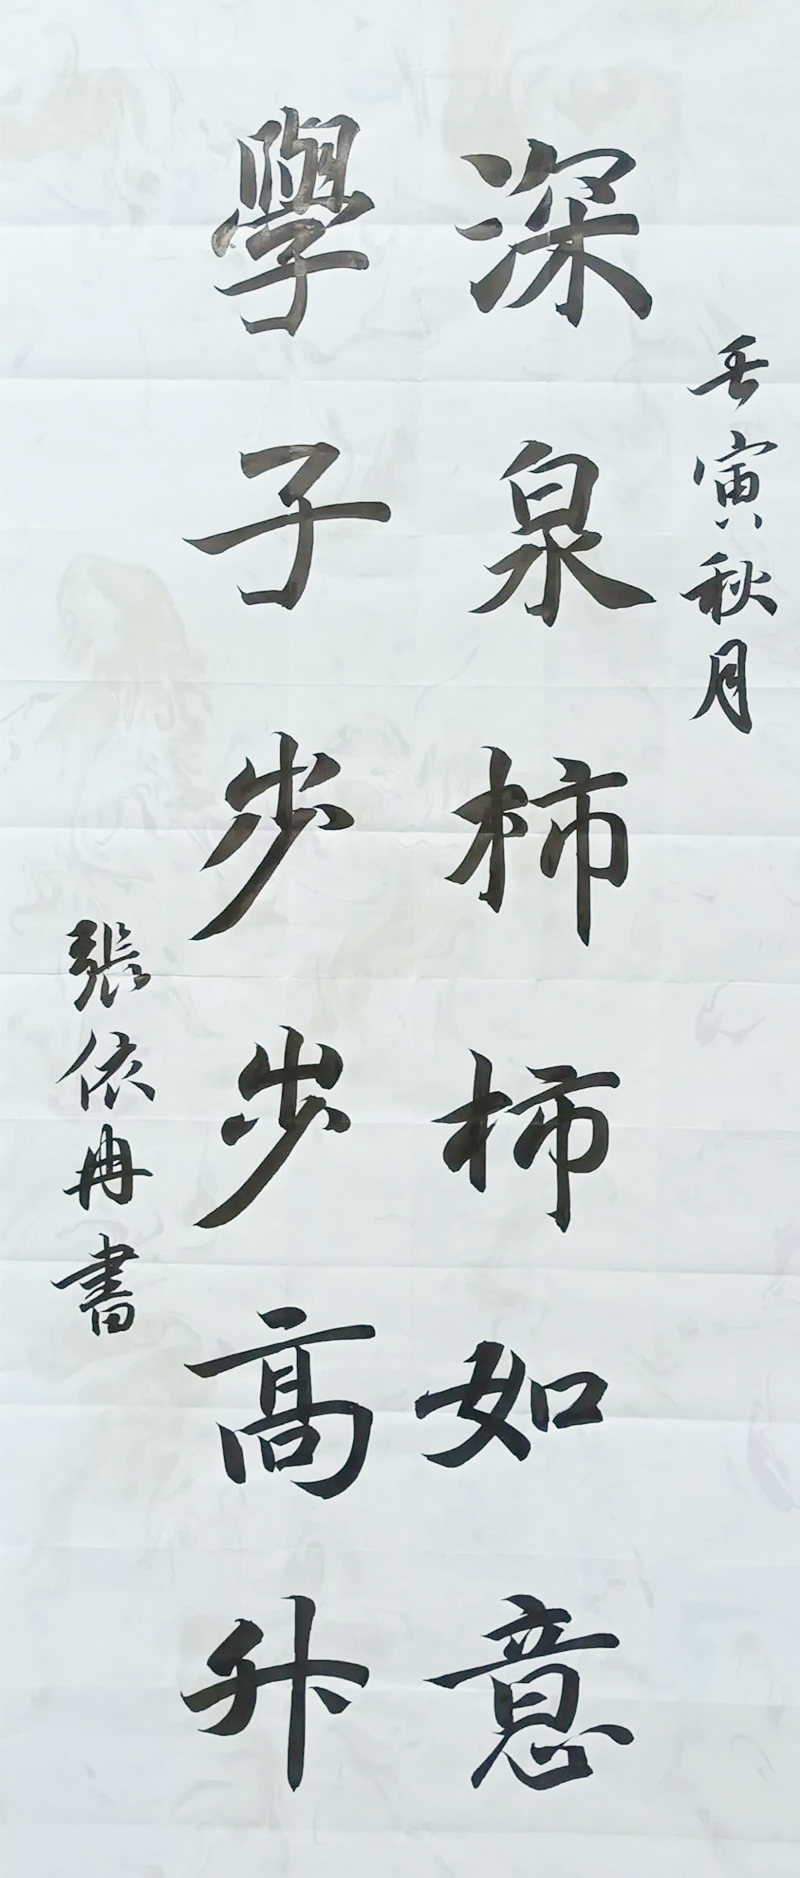 壬寅秋月
深泉柿柿如意
學子步步高升
張依冉書